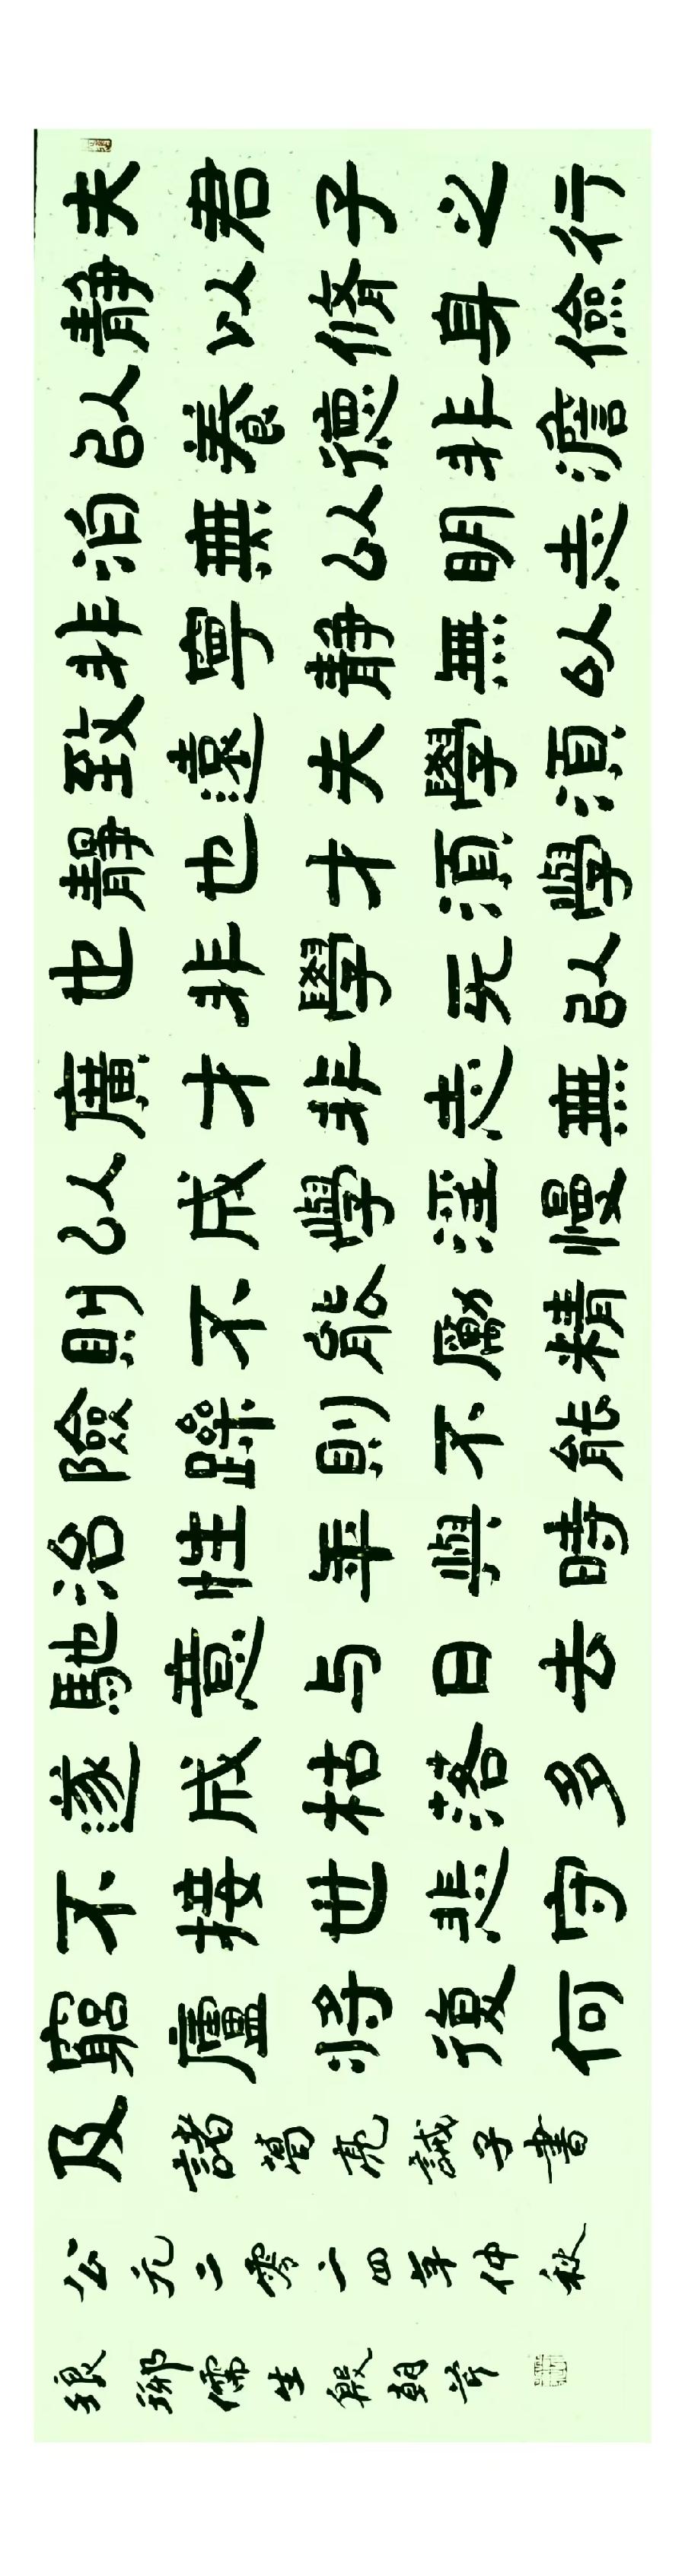 夫君子之行
靜以脩身儉
以養德非澹
泊無以明志
非寧靜無以
致遠夫學須
靜也才須學
也非學无以
廣才非志無
以成學淫慢
則不能勵精
險躁則不能
治性年與時
馳意与日去
遂成枯落多
不接世悲守
窮廬將復何
及 諸葛亮誡子書
公元二零一四年仲秋
琅琊儒生殷朝